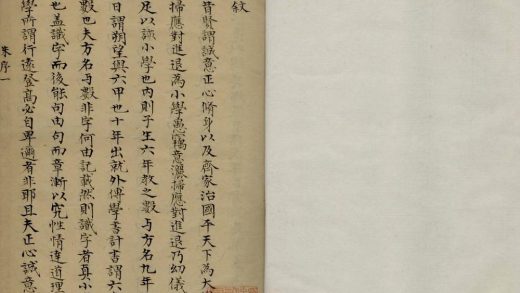 敘
昔賢謂誠意正心脩身以及齊家治國平天下為大
掃應對進退為小學愚竊意灑掃應對進退乃幼儀
足以該小學也內則子生六年教之數与方名九年
日謂朔望與六甲也十年出就外傅學書計書謂六
數也夫方名与數非字何由記載然則識字者真小
也蓋識字而後能句由句而章漸以究性情達道理
學所謂行遠登高必自卑邇者非耶且夫正心誠意
朱序一